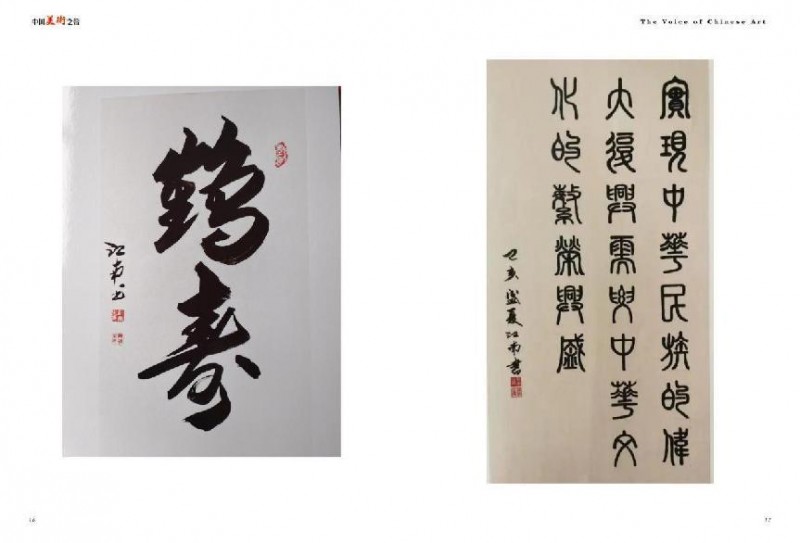 中国美術之音
The Voice of Chinese Art
鶴壽
江南书
實現中華民族的偉
大復興需要中華文
化的繁榮興盛
己亥盛夏江南書
16
17